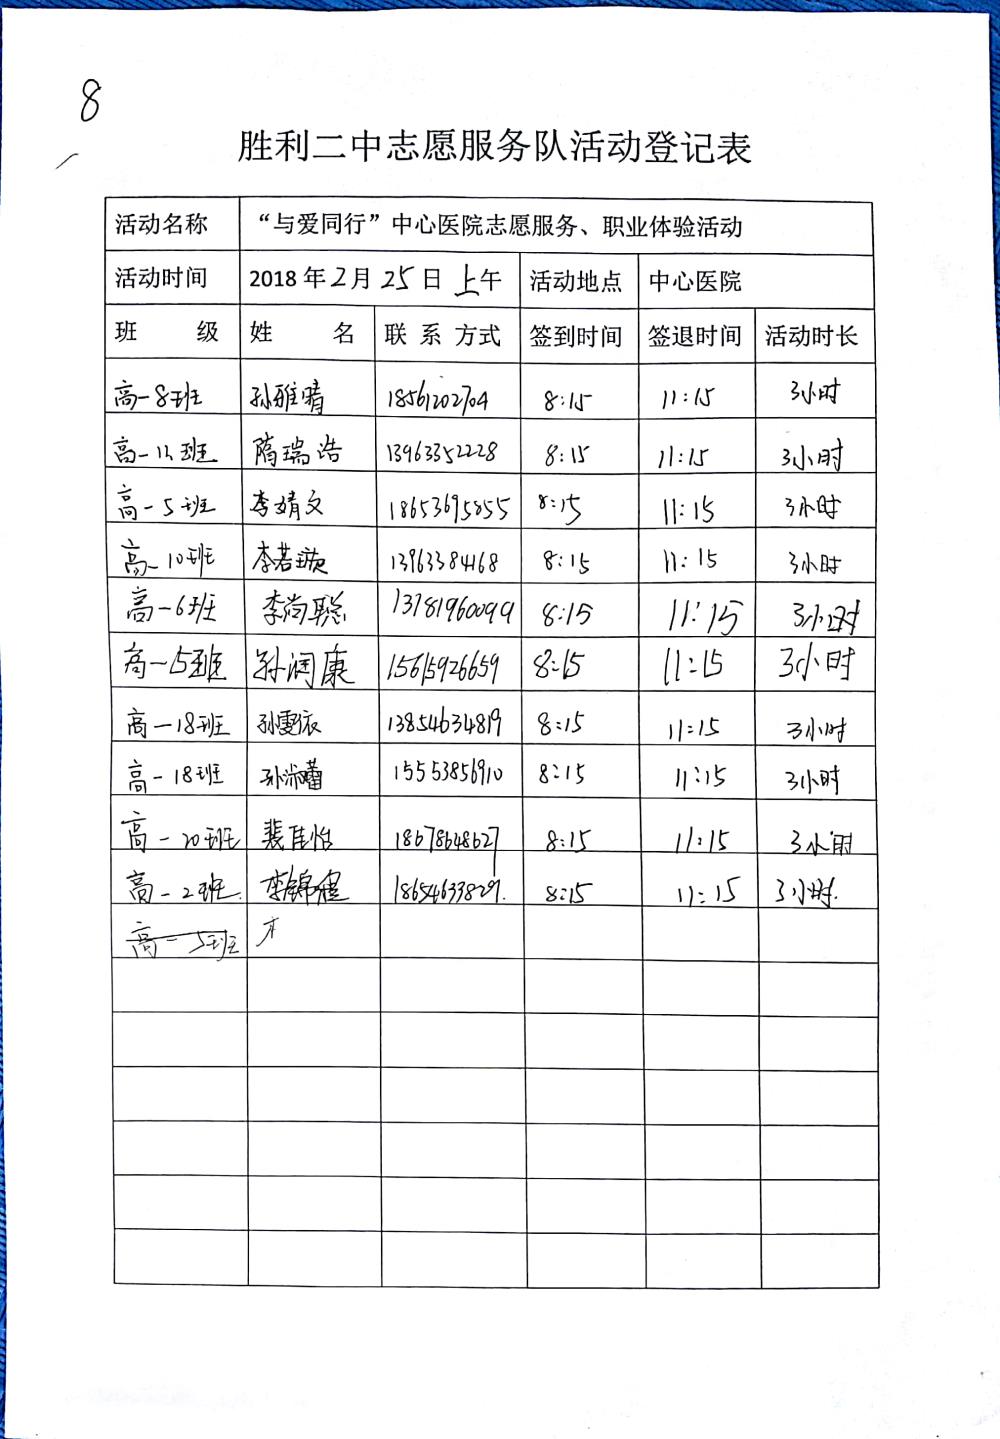 8
胜利二中志愿服务队活动登记表
活动名称 “与爱同行”中心医院志愿服务、职业体验活动
活动时间 2018年2月25日上午 活动地点 中心医院
班级 姓名 联系方式 签到时间 签退时间 活动时长
高一8班 孙雅晴 18561202704 8:15 11:15 3小时
高一 班 隋瑞浩 13963352228 8:15 11:15 3小时
高一5班 李婧文 18653695855 8:15 11:15 3小时
高一10班 李若璇 13963384168 8:15 11:15 3小时
高一6班 李尚聪 8:15 11:15 3小时
高一15班 孙润康 15615926659 8:15 11:15 3小时
高一18班 孙雯依 13854634819 8:15 11:15 3小时
高一18班 孙 蕾 15553856910 8:15 11:15 3小时
高一20班 裴佳怡 18678648627 8:15 11:15 3小时
高一2班 李锦程 18654633829. 8:15 11:15 3小时.
高一5班